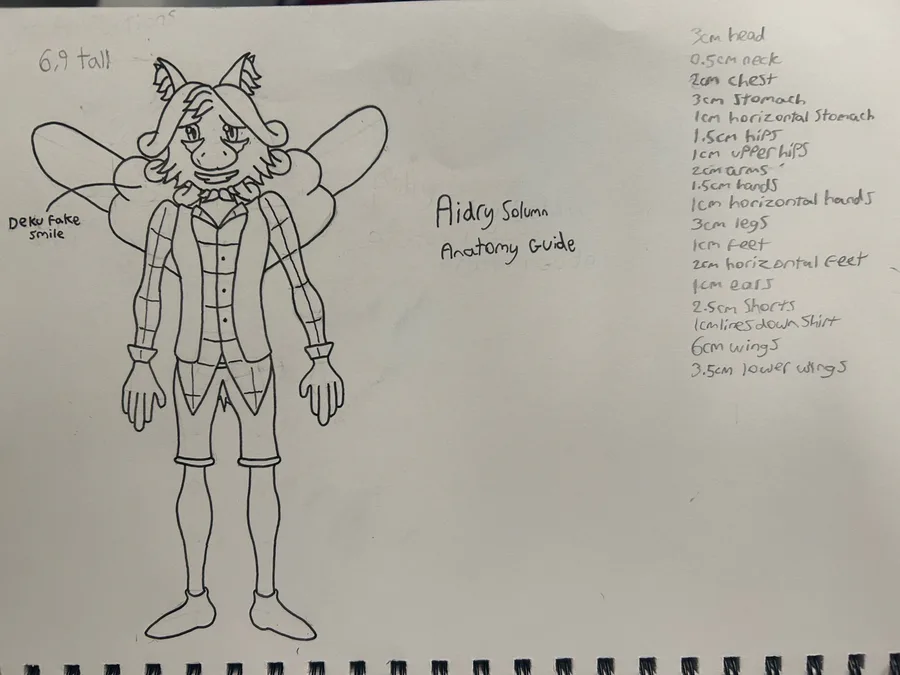 6,9 tall
Deku fake
smile
Aidry Solumn
Anatomy Guide
3cm head
0.5cm neck
2cm chest
3cm Stomach
1cm horizontal Stomach
1.5cm hips
1cm upper hips
2cm arms
1.5cm hands
1cm horizontal hands
3cm legs
1cm feet
2cm horizontal feet
1cm ears
2.5cm Shorts
1cm lines down Shirt
6cm wings
3.5cm lower wings